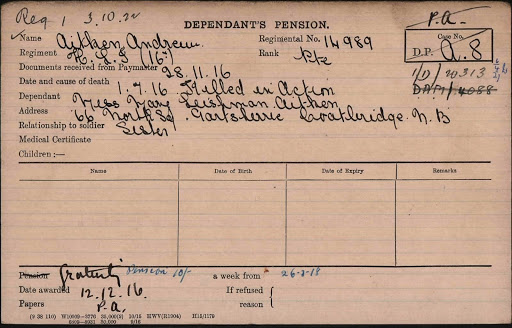 Req. 1 3.10.22
P.A.
DEPENDANT'S PENSION.
Name Aitken Andrew Regimental No. 14989
Case No.
D.P. A.8
Regiment H.L.I (16th) Rank Pte
Documents received from Paymaster 28.11.16
1/D/ 20313
Date and cause of death 1.7.16 Killed in Action
Dependant Miss Mary Leishman Aitken
Address 66 North Sq. Gartsherrie Coatbridge. N.B
Relationship to soldier Sister
Medical Certificate
Children :—
Name Date of Birth Date of Expiry Remarks
Pension Gratuity Pension 10/- a week from 26-3-18
Date awarded 12.12.16. If refused
Papers P.A. reason